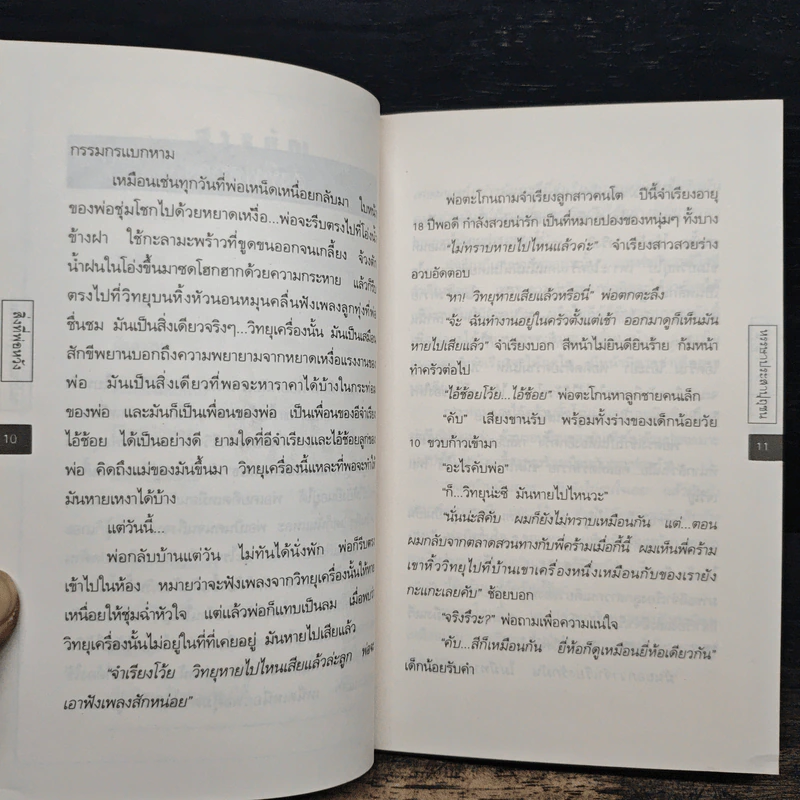 กรรมกรแบกหาม
เหมือนเช่นทุกวันที่พ่อเหน็ดเหนื่อยกลับมา
ของพ่อชุ่มโชกไปด้วยหยาดเหงื่อ...พ่อจะรีบตรงไปที่โอ่งน้ำ
ข้างฝา ใช้กะลามะพร้าวที่ขูดขนออกจนเกลี้ยง จ้วงตัก
น้ำฝนในโอ่งขึ้นมาซดโฮกฮากด้วยความกระหาย แล้วก็รีบ
ตรงไปที่วิทยุบนหิ้งหัวนอนหมุนคลื่นฟังเพลงลูกทุ่งที่พ่อ
ชื่นชม มันเป็นสิ่งเดียวจริงๆ...วิทยุเครื่องนั้น มันเป็นเสมือน
สักขีพยานบอกถึงความพยายามจากหยาดเหงื่อแรงงานของ
พ่อ มันเป็นสิ่งเดียวที่พอจะหาราคาได้บ้างในกระท่อม
ของพ่อ และมันก็เป็นเพื่อนของพ่อ เป็นเพื่อนของอีจำเรียง
ไอ้ช้อย ได้เป็นอย่างดี ยามใดที่อีจำเรียงและไอ้ช้อยลูกของ
พ่อ คิดถึงแม่ของมันขึ้นมา วิทยุเครื่องนี้แหละที่พอจะทำให้
มันหายเหงาได้บ้าง
แต่วันนี้...
พ่อกลับบ้านแต่วัน ไม่ทันได้นั่งพัก พ่อก็รีบตรง
เข้าไปในห้อง หมายว่าจะฟังเพลงจากวิทยุเครื่องนั้นให้หาย
เหนื่อยให้ชุ่มฉ่ำหัวใจ แต่แล้วพ่อก็แทบเป็นลม เมื่อพบว่า
วิทยุเครื่องนั้นไม่อยู่ในที่ที่เคยอยู่ มันหายไปเสียแล้ว
“จำเรียงโว้ย วิทยุหายไปไหนเสียแล้วล่ะลูก พ่อจะ
เอาฟังเพลงสักหน่อย”
สิ่งที่พ่อหวัง
10
พ่อตะโกนถามจำเรียงลูกสาวคนโต ปีนี้จำเรียงอายุ
18 ปีพอดี กำลังสวยน่ารัก เป็นที่หมายปองของหนุ่มๆ ทั้งบาง
“ไม่ทราบหายไปไหนแล้วค่ะ” จำเรียงสาวสวยร่าง
อวบอัดตอบ
“หา! วิทยุหายเสียแล้วหรือนี่” พ่อตกตะลึง
“จ้ะ ฉันทำงานอยู่ในครัวตั้งแต่เช้า ออกมาดูก็เห็นมัน
หายไปเสียแล้ว” จำเรียงบอก สีหน้าไม่ยินดียินร้าย ก้มหน้า
ทำครัวต่อไป
“ไอ้ช้อยโว้ย...ไอ้ช้อย” พ่อตะโกนหาลูกชายคนเล็ก
“คับ” เสียงขานรับ พร้อมทั้งร่างของเด็กน้อยวัย
10 ขวบก้าวเข้ามา
“อะไรคับพ่อ”
“ก็...วิทยุน่ะซี มันหายไปไหนวะ”
“นั่นน่ะสิคับ ผมก็ยังไม่ทราบเหมือนกัน แต่...ตอน
ผมกลับจากตลาดสวนทางกับพี่คร้ามเมื่อกี้นี้ ผมเห็นพี่คร้าม
เขาหิ้ววิทยุไปที่บ้านเขาเครื่องหนึ่งเหมือนกับของเรายัง
กะแกะเลยคับ” ช้อยบอก
“จริงรึวะ?” พ่อถามเพื่อความแน่ใจ
“คับ...สีก็เหมือนกัน ยี่ห้อก็ดูเหมือนยี่ห้อเดียวกัน”
เด็กน้อยรับคำ
พรรษาประหาปุถุชน
11